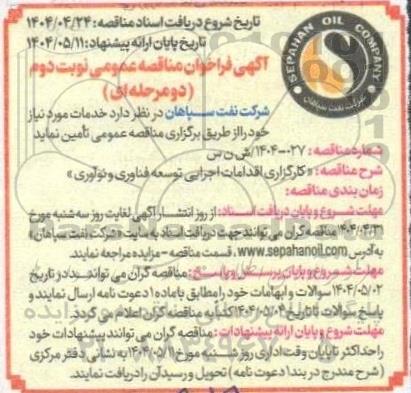 SEPAHAN OIL COMPANY
شرکت نفت سپاهان
تاریخ شروع دریافت اسناد مناقصه: ۱۴۰۴/۰۴/۲۴
تاریخ پایان ارائه پیشنهاد: ۱۴۰۴/۰۵/۱۱
آگهی فراخوان مناقصه عمومی نوبت دوم
(دو مرحله ای)
شرکت نفت سپاهان در نظر دارد خدمات مورد نیاز
خود را از طریق برگزاری مناقصه عمومی تأمین نماید
شماره مناقصه: ۱۴۰۴-۰۲۷/ش ن س
شرح مناقصه: «کارگزاری اقدامات اجرایی توسعه فناوری و نوآوری»
زمان بندی مناقصه:
مهلت شروع و پایان دریافت اسناد: از روز انتشار آگهی لغایت روز سه شنبه مورخ
۱۴۰۴/۰۴/۳۱ مناقصه گران می توانند جهت دریافت اسناد به سایت «شرکت نفت سپاهان»
به آدرس www.sepahanoil.com، قسمت مناقصه - مزایده مراجعه نمایند.
مهلت شروع و پایان پرسش و پاسخ: مناقصه گران می توانند در تاریخ
۱۴۰۴/۰۵/۰۲ سوالات و ابهامات خود را مطابق با ماده ۱ دعوت نامه ارسال نمایند و
پاسخ سوالات تا تاریخ ۱۴۰۴/۰۵/۰۴ کتبا به مناقصه گران اعلام می گردد.
مهلت شروع و پایان ارائه پیشنهادات: مناقصه گران می توانند پیشنهادات خود
را حداکثر تا پایان وقت اداری روز شنبه مورخ ۱۴۰۴/۰۵/۱۱ به نشانی دفتر مرکزی
(شرح مندرج در بند ۱ دعوت نامه) تحویل و رسید آن را دریافت نمایند.